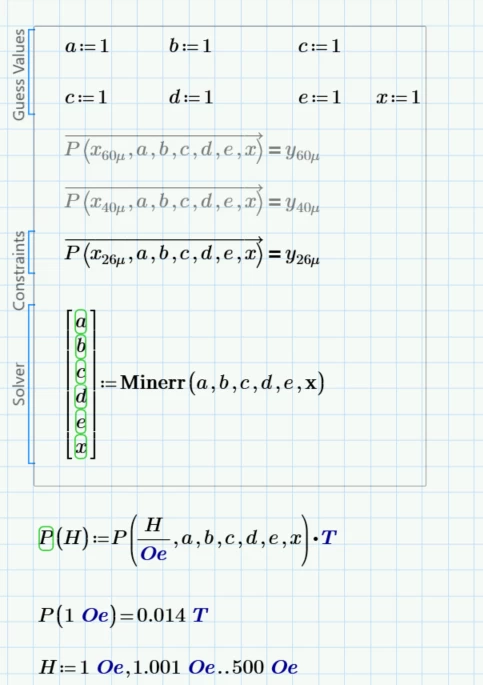 Guess Values
a:=1 b:=1 c:=1
c:=1 d:=1 e:=1 x:=1
P(x₆₀μ,a,b,c,d,e,x)=y₆₀μ
P(x₄₀μ,a,b,c,d,e,x)=y₄₀μ
Constraints
P(x₂₆μ,a,b,c,d,e,x)=y₂₆μ
Solver
[a
b
c
d
e
x]:=Minerr(a,b,c,d,e,x)
P(H):=P(H/Oe,a,b,c,d,e,x)·T
P(1 Oe)=0.014 T
H:=1 Oe,1.001 Oe..500 Oe